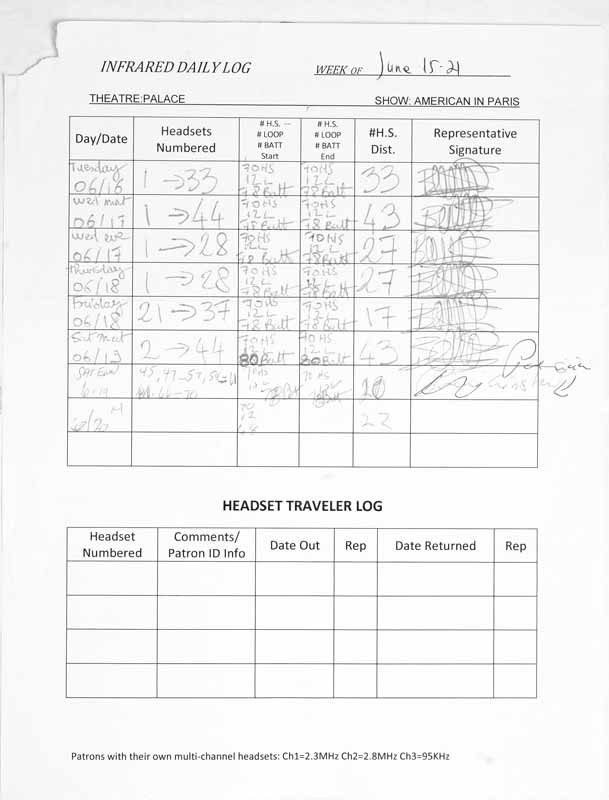 INFRARED DAILY LOG WEEK OF June 15-21
THEATRE:PALACE SHOW: AMERICAN IN PARIS
Day/Date
Headsets
Numbered
# H.S. --
# LOOP
# BATT
Start
# H.S.
# LOOP
# BATT
End
#H.S.
Dist.
Representative
Signature
Tuesday
06/16
1 → 33
70HS
12 L
78 Batt
70HS
12 L
78 Batt
33
Wed mat
06/17
1 → 44
70HS
12 L
78 Batt
70HS
12 L
78 Batt
43
Wed eve
06/17
1 → 28
70HS
12 L
78 Batt
70HS
12 L
78 Batt
27
Thursday
06/18
1 → 28
70HS
12 L
78 Batt
70HS
12 L
78 Batt
27
Friday
06/18
21 → 37
70HS
12 L
78 Batt
70HS
12 L
78 Batt
17
Sat Mat
06/19
2 → 44
70HS
12 L
80 Batt
70HS
12 L
80 Batt
43
SAT Eve
6-19
45, 47-57, 59
66-70
70 HS
70 HS
20
6/20 M
70
12
22
HEADSET TRAVELER LOG
Headset
Numbered
Comments/
Patron ID Info
Date Out
Rep
Date Returned
Rep
Patrons with their own multi-channel headsets: Ch1=2.3MHz Ch2=2.8MHz Ch3=95KHz